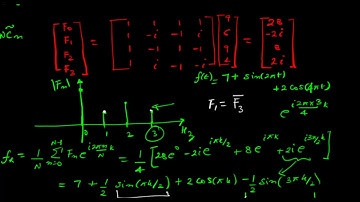 NC̃n
[F0 F1 F2 F3] = [1 1 1 1; 1 -i -1 i; 1 -1 1 -1; 1 i -1 -i] [9 6 9 4] = [28 -2i 8 2i]
f(t) = 7 + sin(2πt) + 2cos(4πt)
|Fn|
F1 = F̄3
0 1 2 3 Hz
fk = 1/N Σ n=0 N-1 Fn e^{i2πnk/N} = 1/4 [28e^0 - 2i e^{iπk/2} + 8 e^{iπk} + 2i e^{i3πk/2}]
= 7 + 1/2 sin(πk/2) + 2cos(πk) - 1/2 sin(3πk/2)